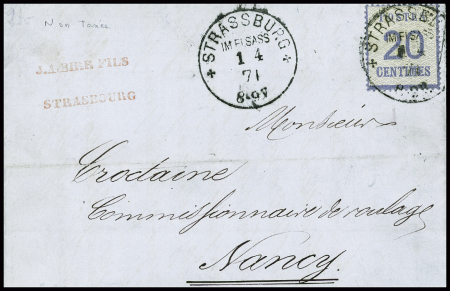 Non Taxée
J. ALBIRE FILS
STRASBOURG
STRASSBURG
IM ELSASS
1 4
71
8-9V
STRASSBURG
IM ELSASS
POSTES
20
CENTIMES
Monsieur
Crodaine
Commissionnaire de roulage
Nancy.